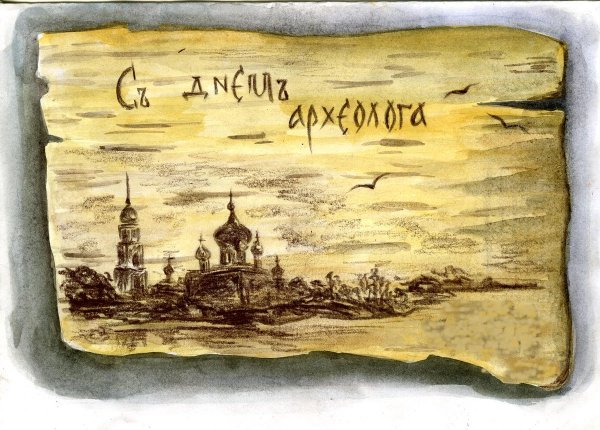 Съ днемъ
археолога